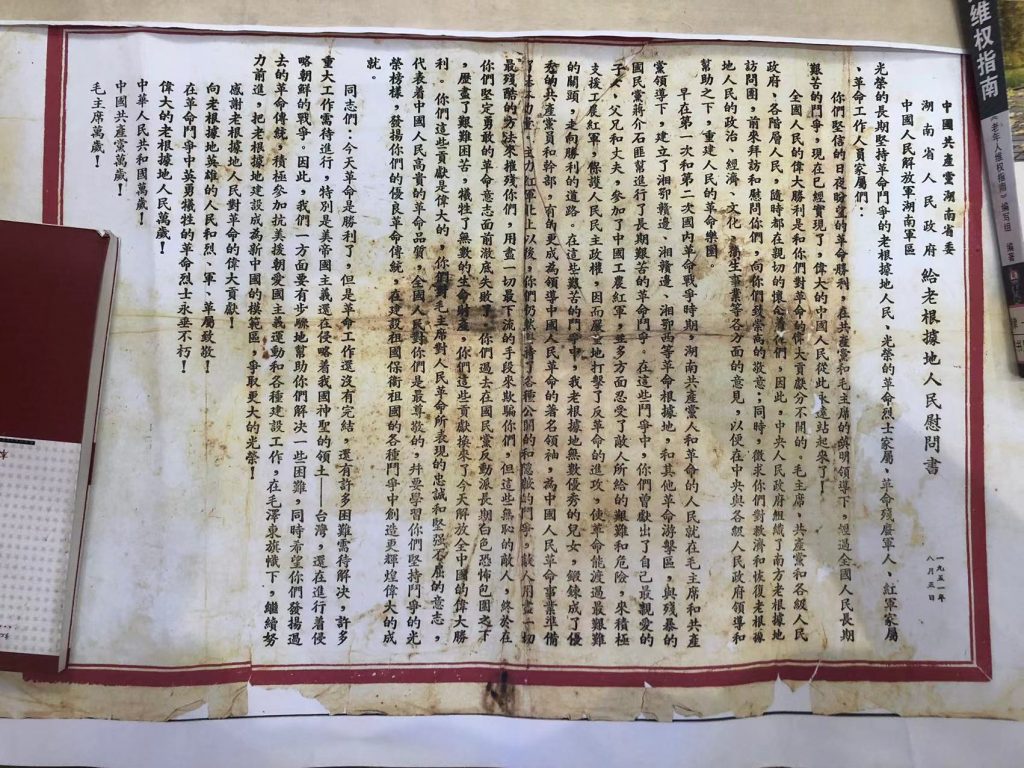 中國共產黨湖南省委
湖南省人民政府
中國人民解放軍湖南軍區
給老根據地人民慰問書
一九五一年
八月五日
光榮的長期堅持革命鬥爭的老根據地人民、光榮的革命烈士家屬、革命殘廢軍人、紅軍家屬
、革命工作人員家屬們：
你們堅信的日夜盼望的革命勝利，在共產黨和毛主席的英明領導下，經過全國人民長期
艱苦的鬥爭，現在已經實現了，偉大的中國人民從此永遠站起來了！
全國人民的偉大勝利是和你們對革命的偉大貢獻分不開的。毛主席、共產黨和各級人民
政府、各階層人民，隨時都在親切的懷念着你們，因此，中央人民政府組織了南方老根據地
訪問團，前來拜訪和慰問你們，向你們致崇高的敬意；同時，徵求你們對救濟和恢復老根據
地人民的政治、經濟，文化、衛生事業等各方面的意見，以便在中央與各級人民政府領導和
幫助之下，重建人民的革命樂園
早在第一次和第二次國內革命戰爭時期，湖南共產黨人和革命的人民就在毛主席和共產
黨領導下，建立了湘鄂贛邊、湘贛邊、湘鄂西等革命根據地，和其他革命游擊區，與殘暴的
國民黨蔣介石匪幫進行了長期艱苦的革命鬥爭。在這些鬥爭中，你們曾獻出了自己最親愛的
子女、父兄和丈夫，參加了中國工農紅軍，並多方面忍受了敵人所給的艱難和危險，來積極
支援工農紅軍，保護人民民主政權，因而嚴重地打擊了反革命的進攻，使革命能渡過最艱難
的關頭，走向勝利的道路。在這些艱苦的鬥爭中，我老根據地無數優秀的兒女，鍛鍊成了優
秀的共產黨員和幹部，有的更成為領導中國人民革命的著名領袖，為中國人民革命事業準備
了主要力量，主力紅軍北上以後，你們仍然堅持了各種公開的和隱蔽的鬥爭，敵人用盡一切
最殘酷的方法來摧殘你們，用盡一切最下流的手段來欺騙你們，但這些無恥的敵人，終於在
你們堅定勇敢的革命意志面前澈底失敗了。你們過去在國民黨反動派長期白色恐怖包圍之下
，歷盡了艱難困苦，犧牲了無數的生命財產，你們這些貢獻換來了今天解放全中國的偉大勝
利。你們這些貢獻是偉大的，你們對毛主席對人民革命所表現的忠誠和堅强不屈的意志，
代表着中國人民高貴的革命品質，全國人民對你們是最尊敬的，幷要學習你們堅持鬥爭的光
榮榜樣，發揚你們的優良革命傳統，在建設祖國保衛祖國的各種鬥爭中創造更輝煌偉大的成
就。
同志們：今天革命是勝利了，但是革命工作還沒有完結，還有許多困難需待解決，許多
重大工作需待進行，特別是美帝國主義還在侵略着我國神聖的領土——台灣，還在進行着侵
略朝鮮的戰爭。因此，我們一方面要有步驟地幫助你們解決一些困難，同時希望你們發揚過
去的革命傳統，積極參加抗美援朝愛國主義運動和各種建設工作，在毛澤東旗幟下，繼續努
力前進，把老根據地建設成為新中國的模範區，爭取更大的光榮！
感謝老根據地人民對革命的偉大貢獻！
向老根據地英雄的人民和烈、軍、革屬致敬！
在革命鬥爭中英勇犧牲的革命烈士永垂不朽！
偉大的老根據地人民萬歲！
中華人民共和國萬歲！
中國共產黨萬歲！
毛主席萬歲！
维权指南
老年人维权指南》编写组 编著